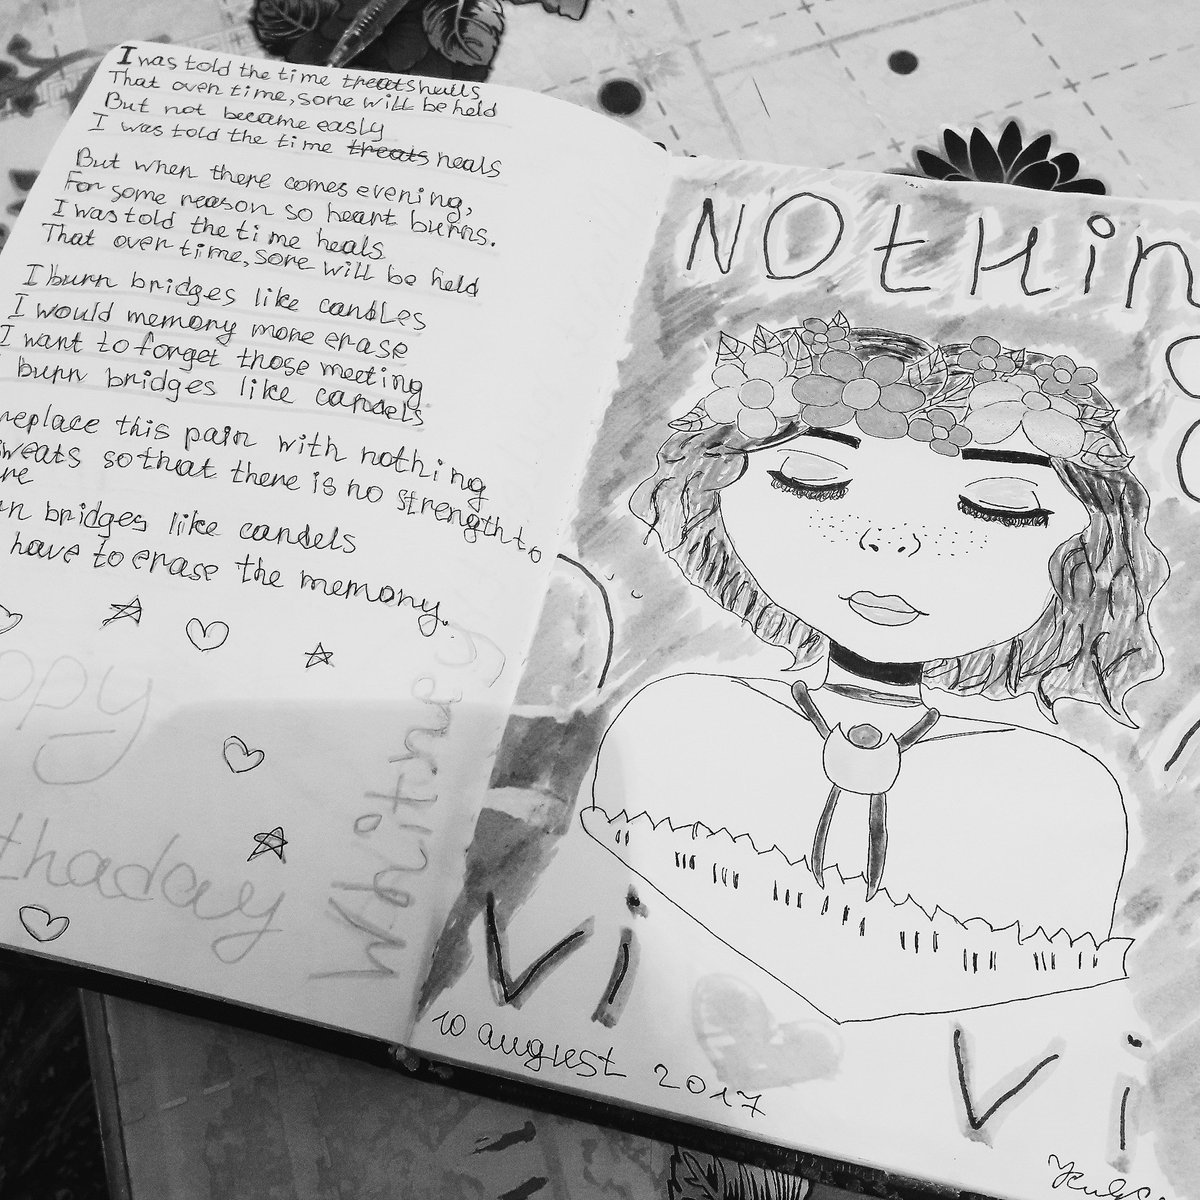 I was told the time treats heals
That over time, sore will be held
But not became easly
I was told the time treats heals
But when there comes evening,
For some reason so heart burns.
I was told the time heals
That over time, sore will be held
I burn bridges like candles
I would memory more erase
I want to forget those meeting
burn bridges like candels
replace this pain with nothing
so that there is no strength to
bridges like candels
have to erase the memory.
Whiting
NOtHin
Vi
10 august 2017
Vi